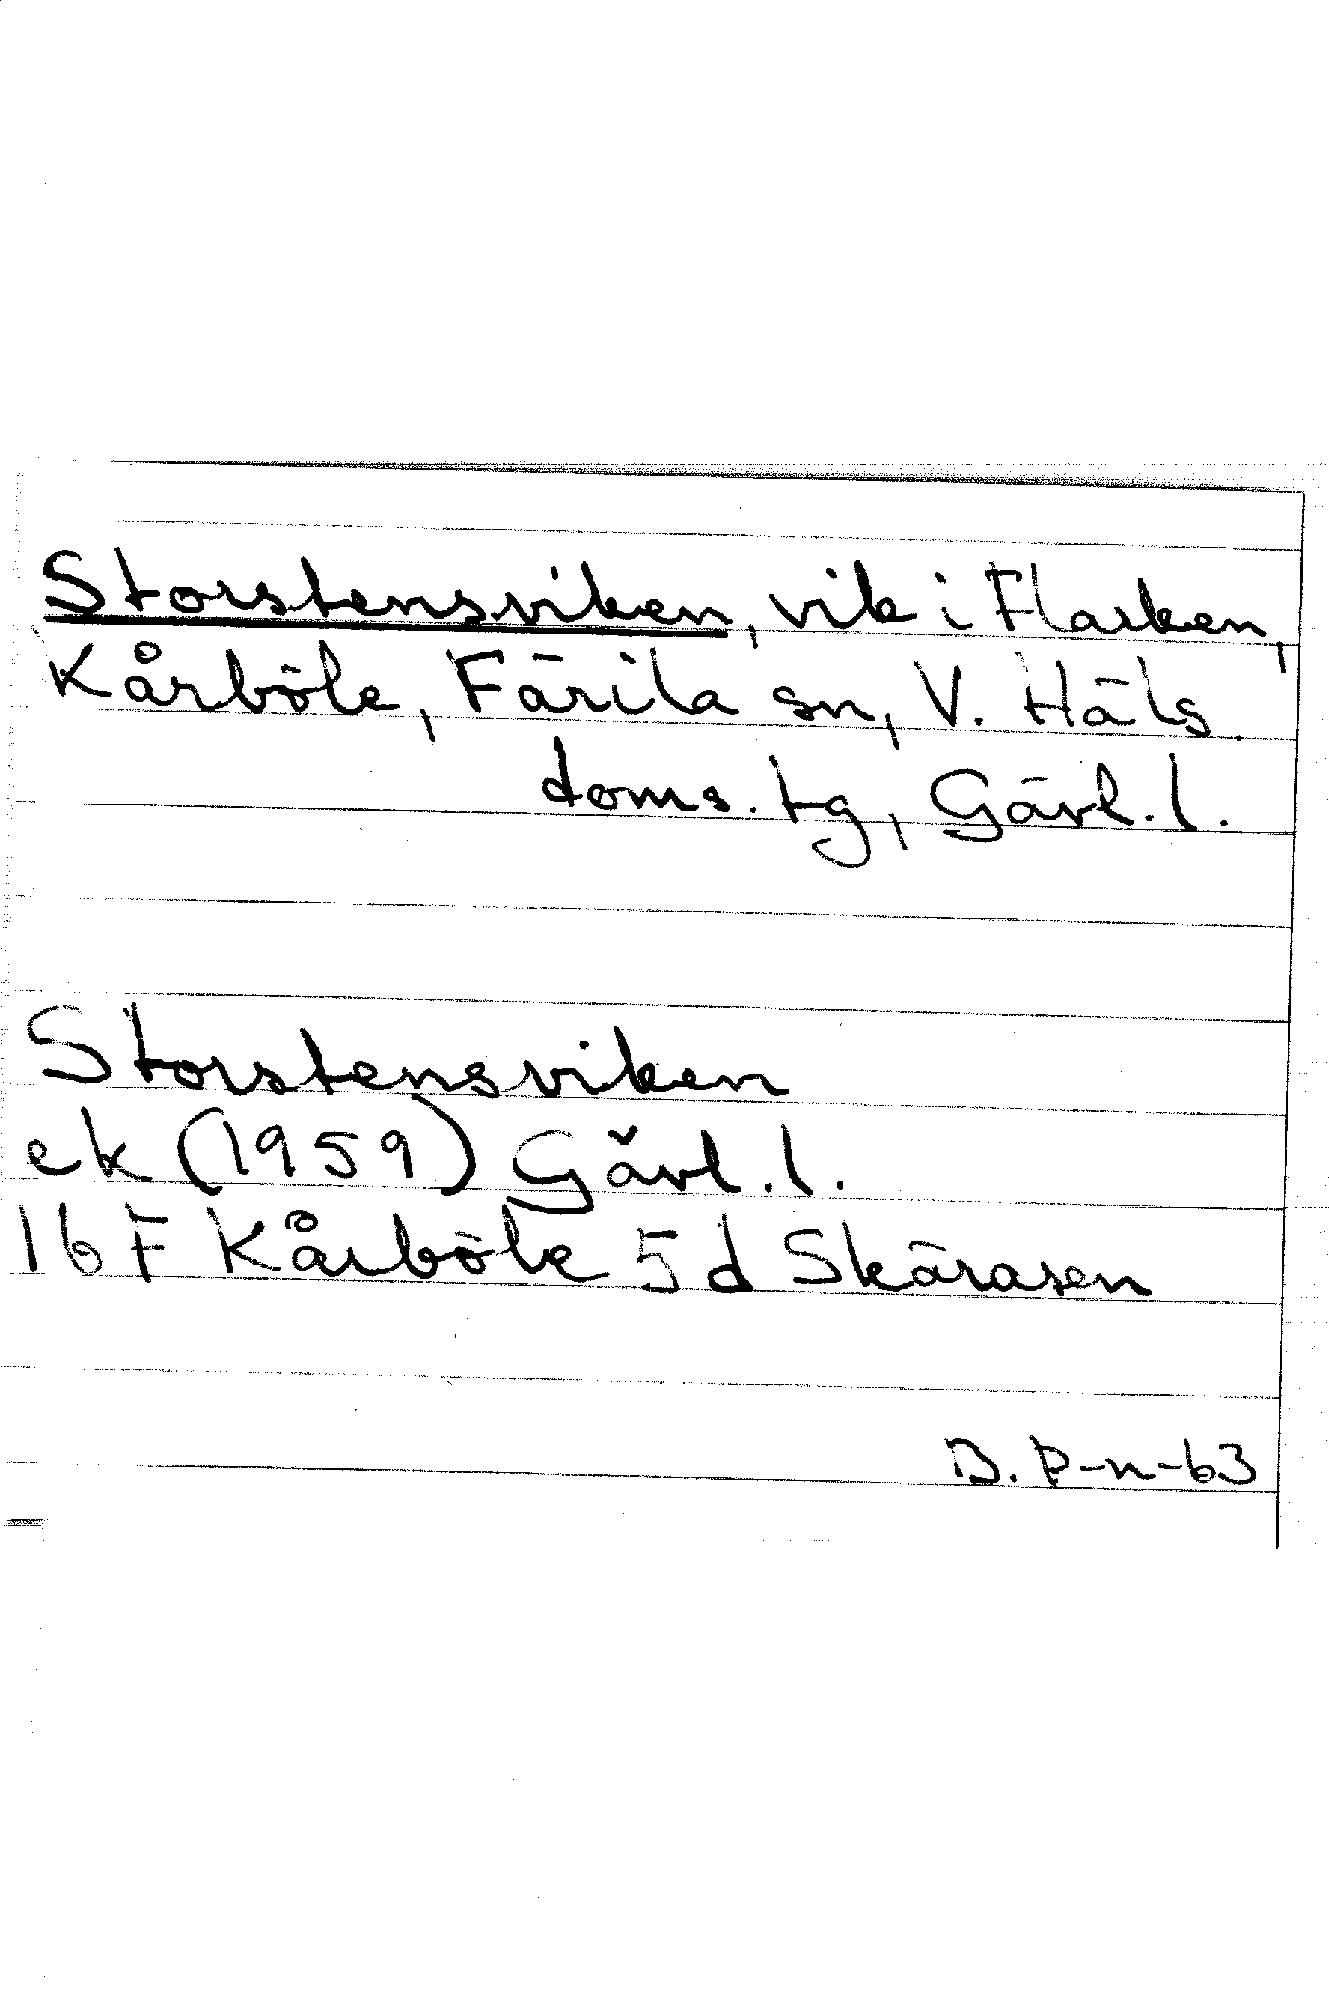 Storstensviken, vik i Flarken,
Kårböle, Färila sn, V. Häls.
doms. tg, Gävl. l.
Storstensviken
ek (1959) Gävl. l.
16 F Kårböle 5 d Skärasen
B. P-n-63